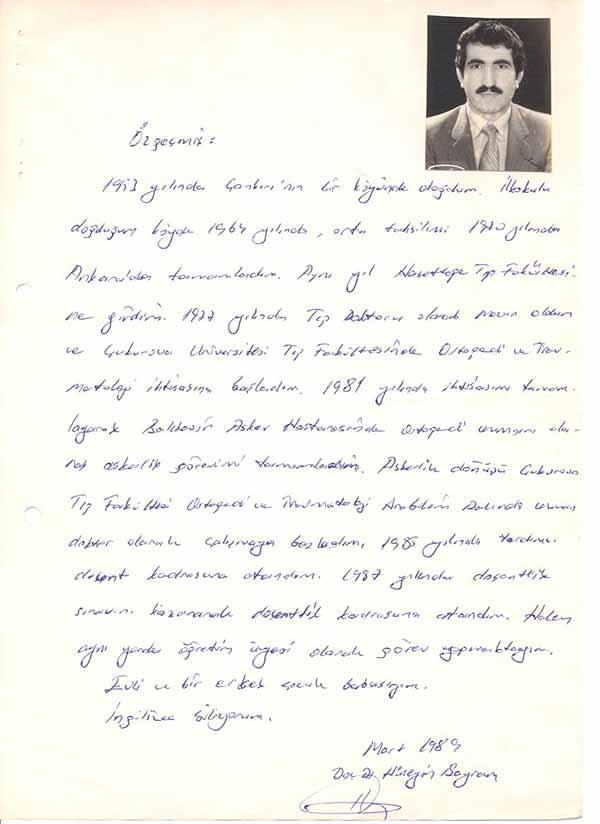 Özgeçmiş:
1953 yılında Çankırı'nın bir köyünde doğdum. İlkokulu
doğduğum köyde 1964 yılında, orta tahsilimi 1970 yılında
Ankara'da tamamladım. Aynı yıl Hacettepe Tıp Fakültesi-
ne girdim. 1977 yılında Tıp Doktoru olarak mezun oldum
ve Çukurova Üniversitesi Tıp Fakültesinde Ortopedi ve Trav-
matoloji ihtisasına başladım. 1981 yılında ihtisasımı tamam-
layarak Balıkesir Asker Hastanesinde Ortopedi uzmanı ola-
rak askerlik görevimi tamamladım. Askerlik dönüşü Çukurova
Tıp Fakültesi Ortopedi ve Travmatoloji Anabilim Dalında uzman
doktor olarak çalışmaya başladım. 1985 yılında Yardımcı
doçent kadrosuna atandım. 1987 yılında doçentlik
sınavını kazanarak doçentlik kadrosuna atandım. Halen
aynı yerde öğretim üyesi olarak görev yapmaktayım.
Evli ve bir erkek çocuk babasıyım.
İngilizce biliyorum.
Mart 1989
Doç. Dr. Hüseyin Bayram